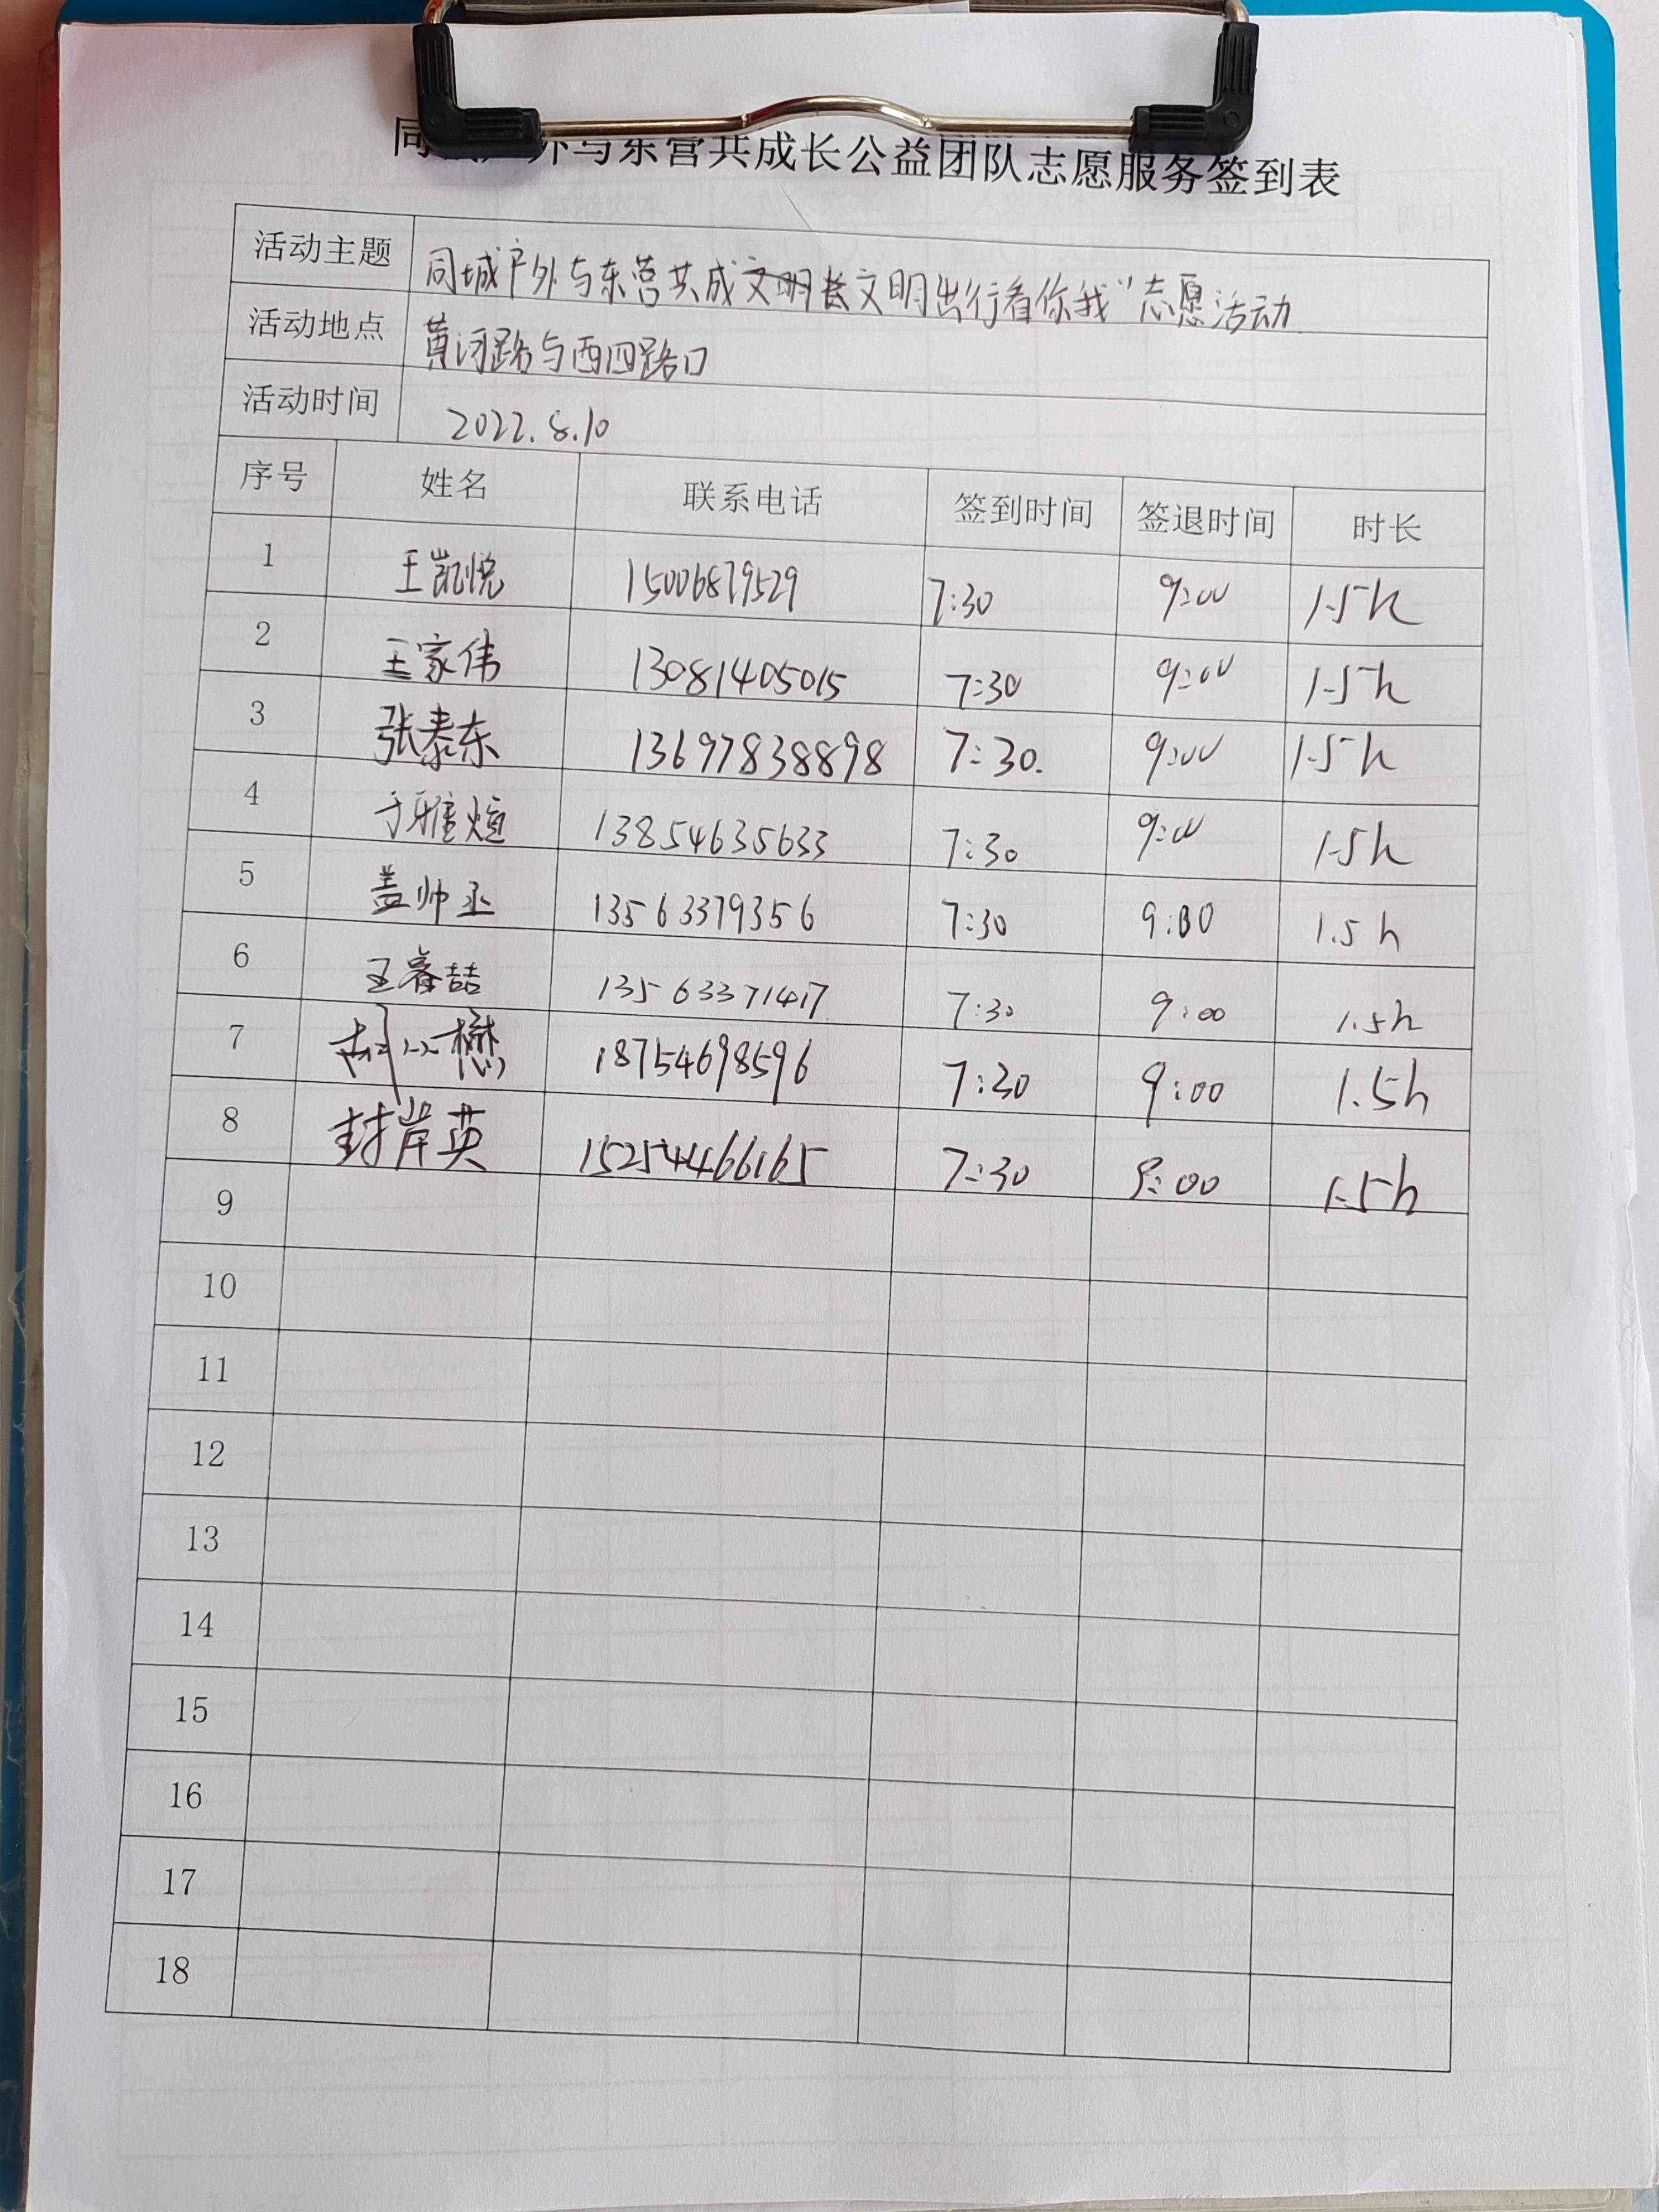 同城户外与东营共成长公益团队志愿服务签到表
活动主题 同城户外与东营共成长文明出行看你我"志愿活动
活动地点 黄河路与西四路口
活动时间 2022.8.10
序号 姓名 联系电话 签到时间 签退时间 时长
1 王凯悦 15006879529 7:30 9:00 1.5h
2 王家伟 13081405015 7:30 9:00 1.5h
3 张泰东 13697838898 7:30. 9:00 1.5h
4 于雅煊 13854635633 7:30 9:00 1.5h
5 盖帅丞 13563379356 7:30 9:00 1.5h
6 王春喆 13563371417 7:30 9:00 1.5h
7 18754698596 7:30 9:00 1.5h
8 封肖英 15254466165 7:30 9:00 1.5h
9
10
11
12
13
14
15
16
17
18